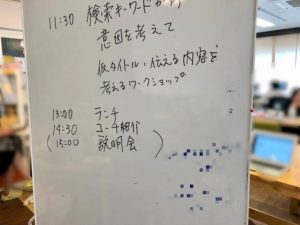 11:30 検索キーワードから
意図を考えて
仮タイトル・伝える内容を
考えるワークショップ
13:00 ランチ
14:30 コーチ紹介
(15:00 説明会)